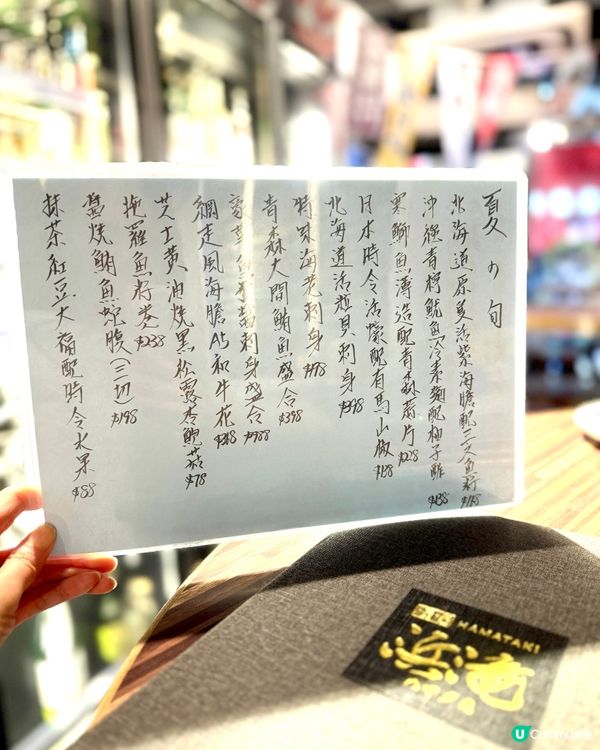 夏の旬
北海道原隻活紫海膽配三文魚籽 $168
沖繩青檸魷魚冷素麵配柚子酢 $138
寒鰤魚薄造配青森蒜片 $228
日本時令活蠔配有馬山椒
北海道活粒貝刺身 $398
特珠海老刺身 $198
青森大間鮪魚盛合 $398
刺身盛合 $988
網走風海膽A5和牛花 $268
芝士黃油燒黑松露杏鮑菇 $78
拖羅魚籽卷 $238
鹽燒鮪魚蛇腹(三切) $198
抹茶紅豆大福配時令水果 $88
HAMATAKI
浜滝
U Community